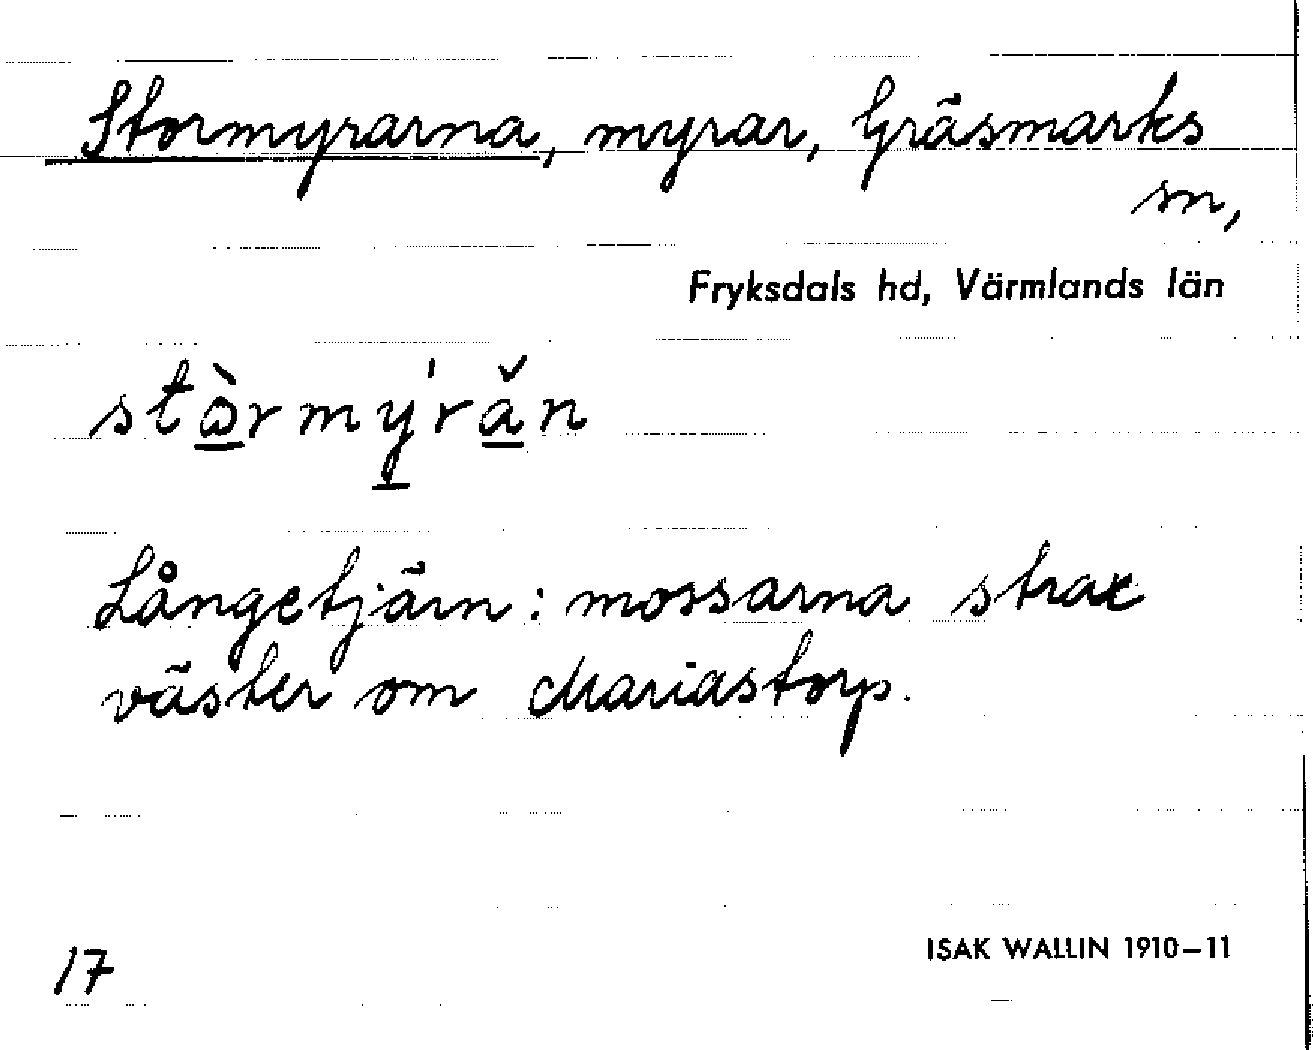 Stormyrarna, myrar, Gräsmarks
sn,
Fryksdals hd, Värmlands län
stòrmy̍răn
Långetjärn: mossarna strax
väster om Mariastorp.
17
ISAK WALLIN 1910–11